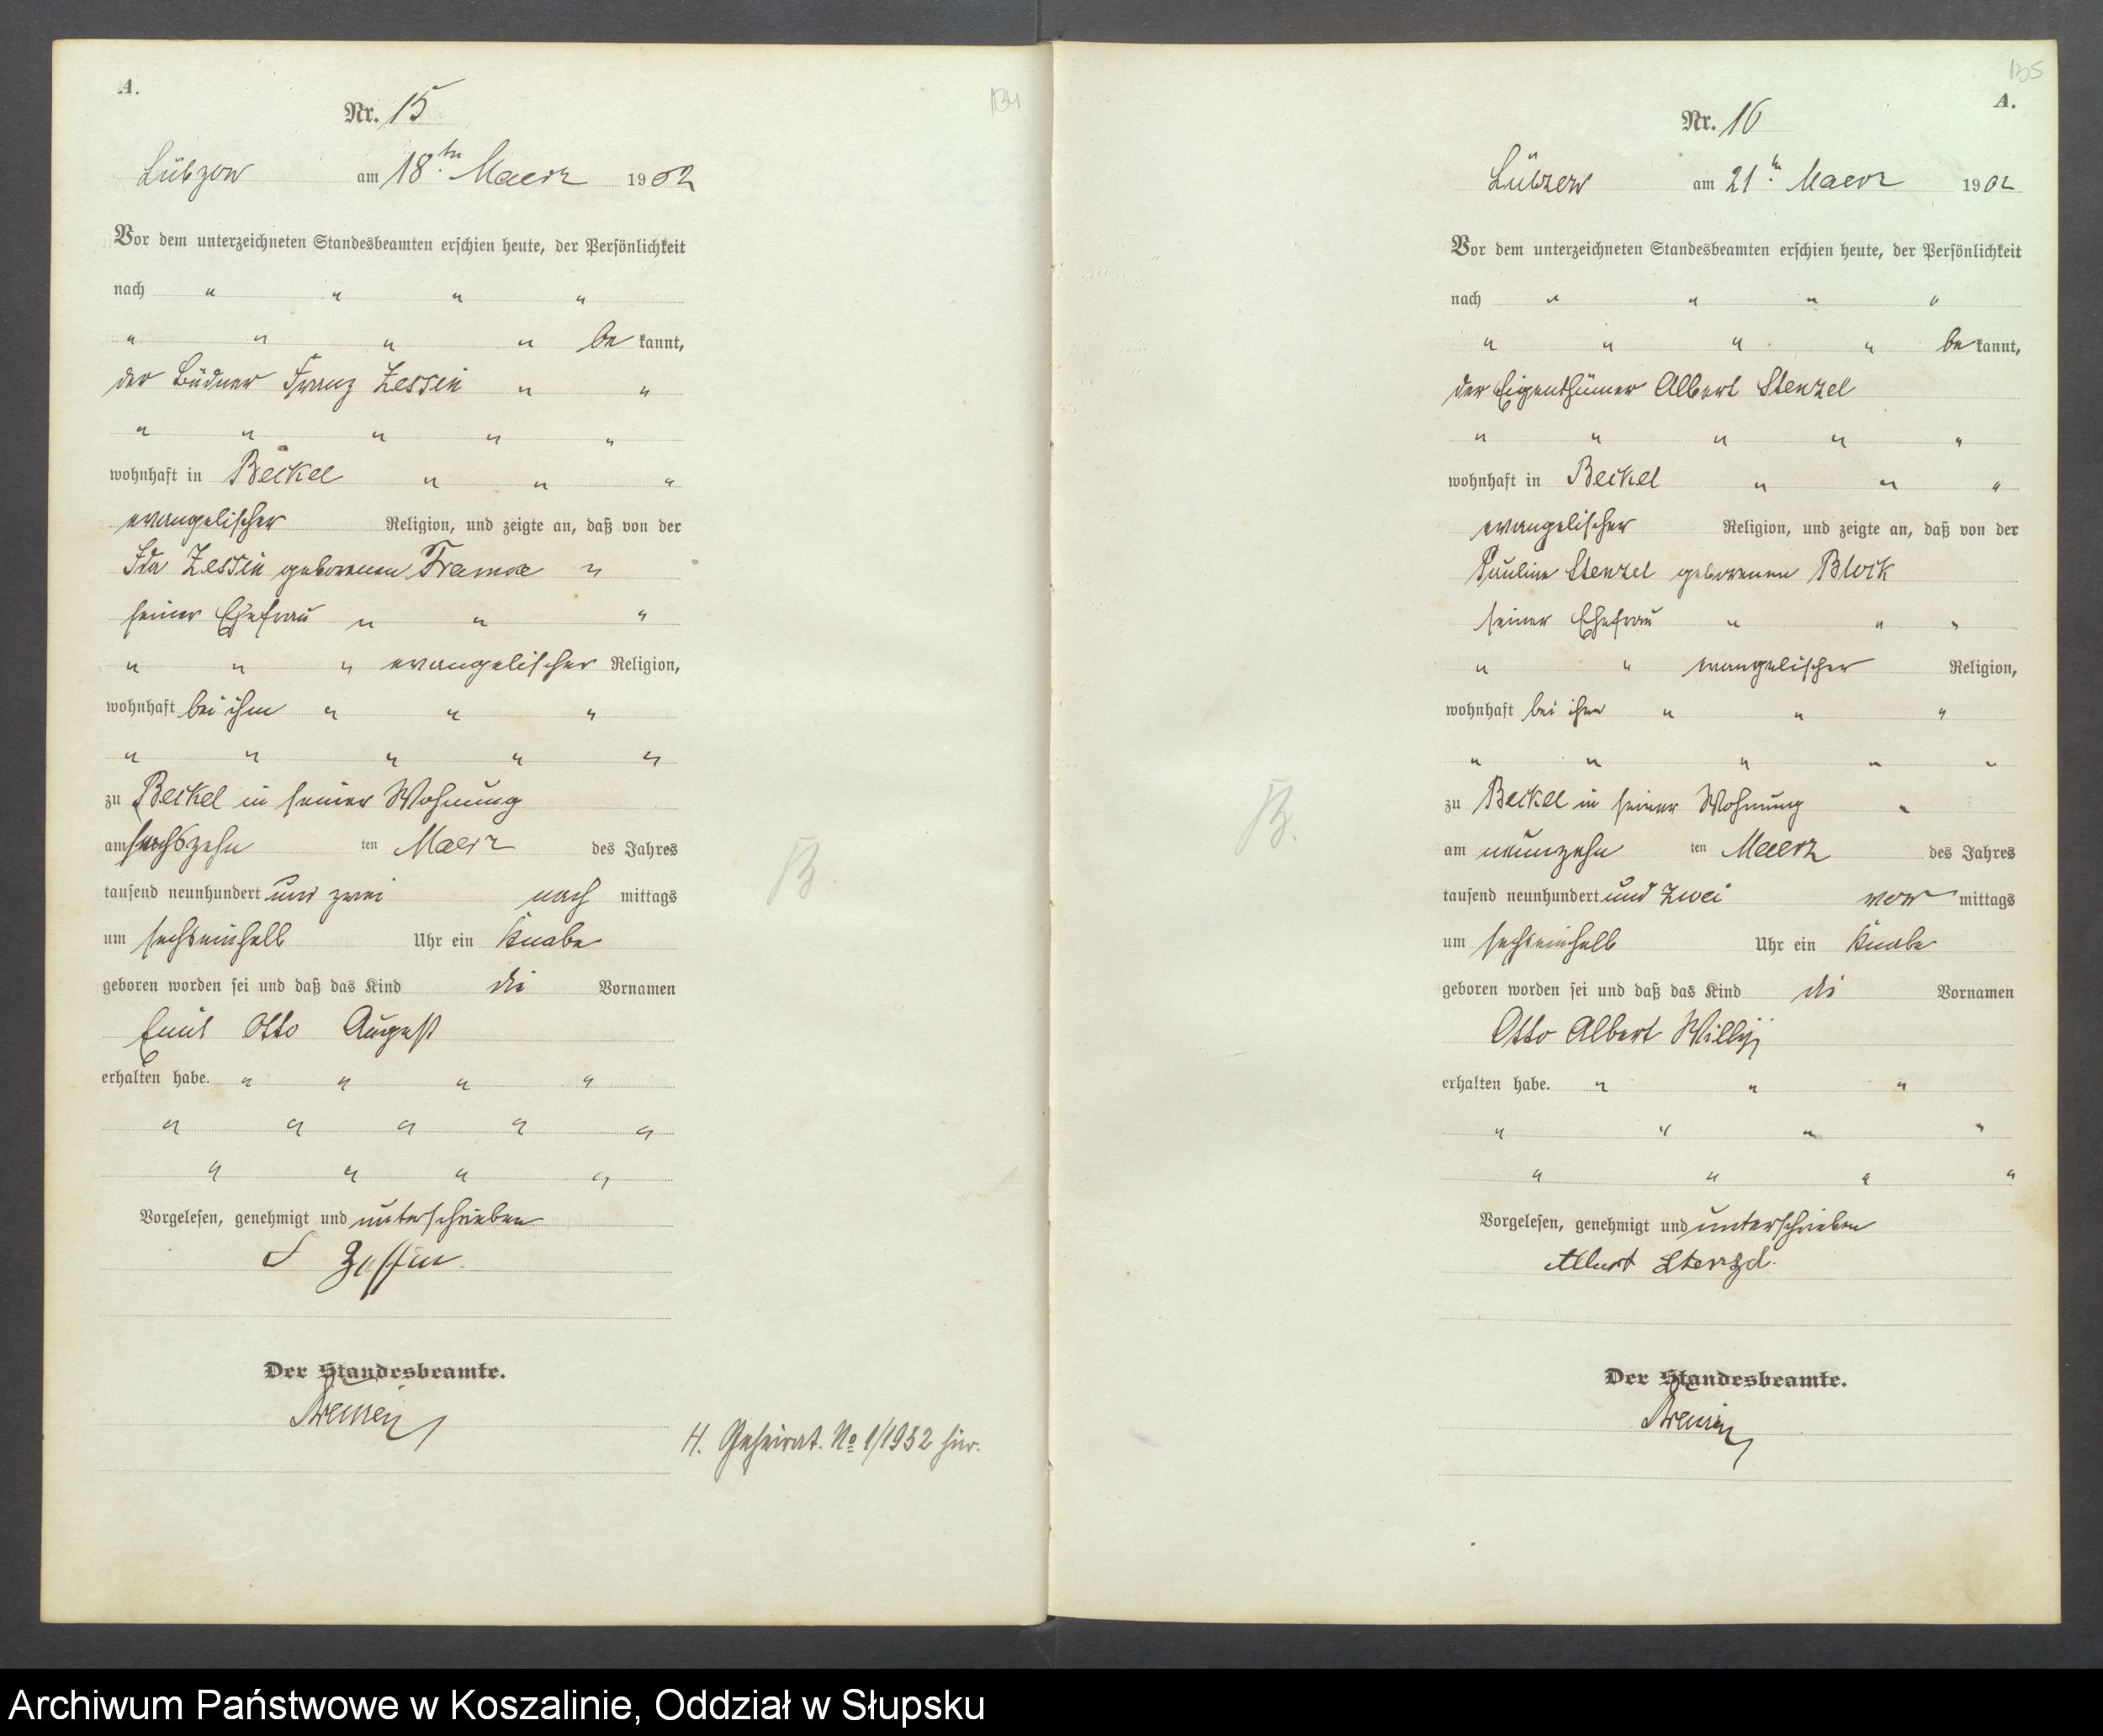 A.
Nr. 15
134
Lübzow am 18ten Maerz 1902
Vor dem unterzeichneten Standesbeamten erschien heute, der Persönlichkeit
nach " " " "
" " " " be kannt,
der Büdner Franz Zessin " "
" " " " "
wohnhaft in Beckel " " "
evangelischer Religion, und zeigte an, daß von der
Ida Zessin geborenen "
seiner Ehefrau " " "
" " " evangelischer Religion,
wohnhaft bei ihm " " "
" " " " "
zu Beckel in seiner Wohnung
am sechszehn ten Maerz des Jahres
tausend neunhundert und zwei nach mittags
um sechseinhalb Uhr ein Knabe
geboren worden sei und daß das Kind die Vornamen
Emil Otto August
erhalten habe. " " " "
" " " " "
" " " "
Vorgelesen, genehmigt und unterschrieben
Zessin
Der Standesbeamte.
H. Geheirat. No 1/1932 hier.
B.
135
A.
Nr. 16
Lübzow am 21ten Maerz 1902
Vor dem unterzeichneten Standesbeamten erschien heute, der Persönlichkeit
nach " " " "
" " " " be kannt,
der Eigenthümer Albert Stenzel
" " " " "
wohnhaft in Beckel " " "
evangelischer Religion, und zeigte an, daß von der
Pauline Stenzel geborenen Block
seiner Ehefrau " " "
" " evangelischer Religion,
wohnhaft bei ihm " " "
" " " " "
zu Beckel in seiner Wohnung "
am neunzehn ten Maerz des Jahres
tausend neunhundert und zwei vor mittags
um sechseinhalb Uhr ein Knabe
geboren worden sei und daß das Kind die Vornamen
Otto Albert Willy
erhalten habe. " " "
" " " "
" " " "
Vorgelesen, genehmigt und unterschrieben
Albert Stenzel.
Der Standesbeamte.
B.
Archiwum Państwowe w Koszalinie, Oddział w Słupsku